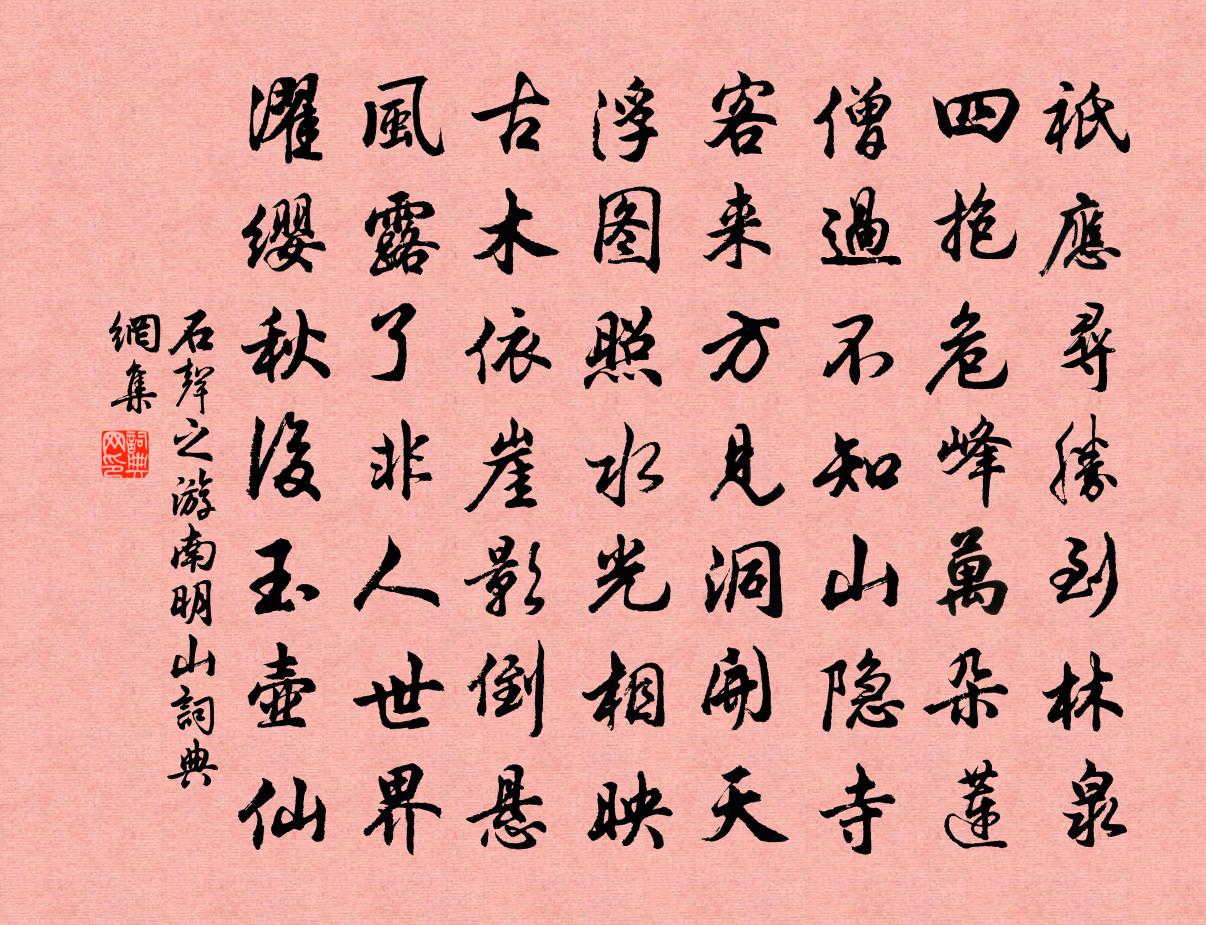 祇應尋勝到林泉
四抱危峰萬朵蓮
僧過不知山隐寺
客来方見洞開天
浮图照水光相映
古木依崖影倒悬
風露了非人世界
濯纓秋後玉壺仙
石聲之游南明山詞典
網集
詞典
网印